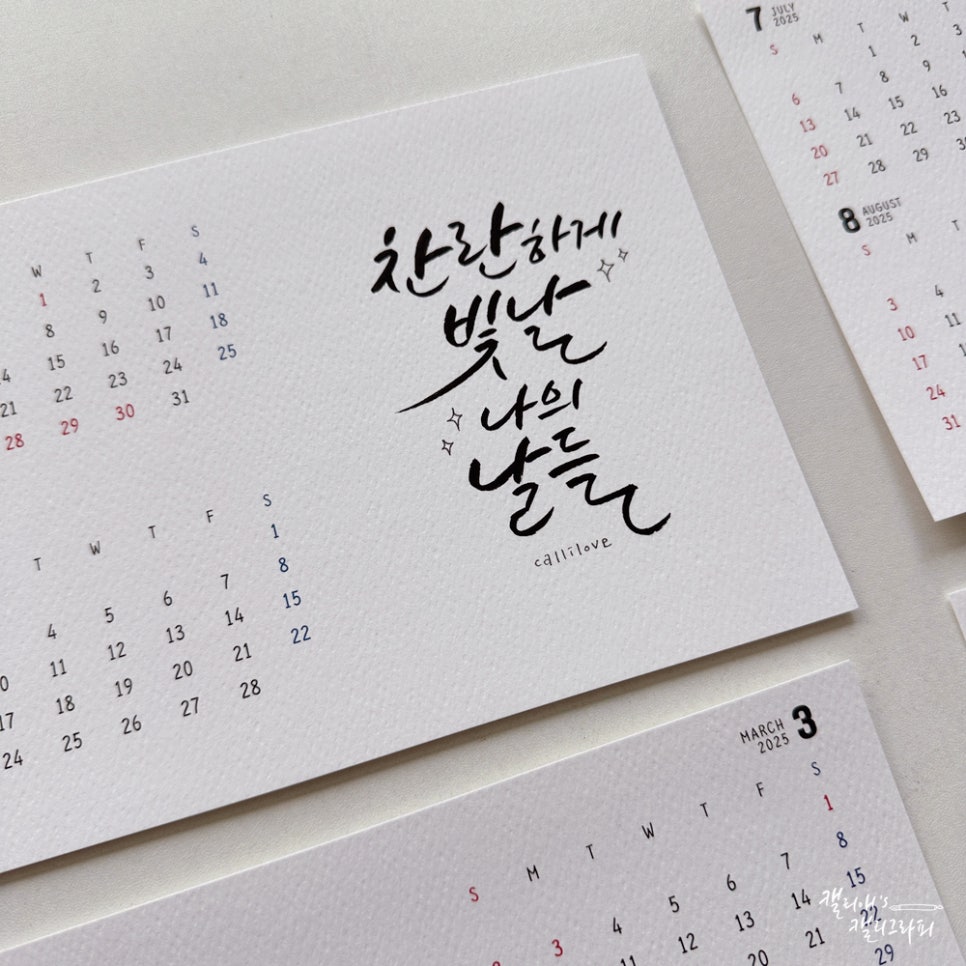 W T F S
1 2 3 4
8 9 10 11
15 16 17 18
21 22 23 24 25
28 29 30 31
T W T F S
1
4 5 6 7 8
11 12 13 14 15
18 19 20 21 22
24 25 26 27 28
찬란하게
빛날
나의
날들
callilove
7 JULY
2025
S M T W T
1 2 3
6 7 8 9
13 14 15 16
20 21 22 23
27 28 29
8 AUGUST
2025
S M T
3 4
10 11
17
24
31
MARCH 3
2025
S M T W T F S
1
3 4 5 6 7 8
11 12 13 14 15
20 21 22
29
캘리애's
캘리그라피